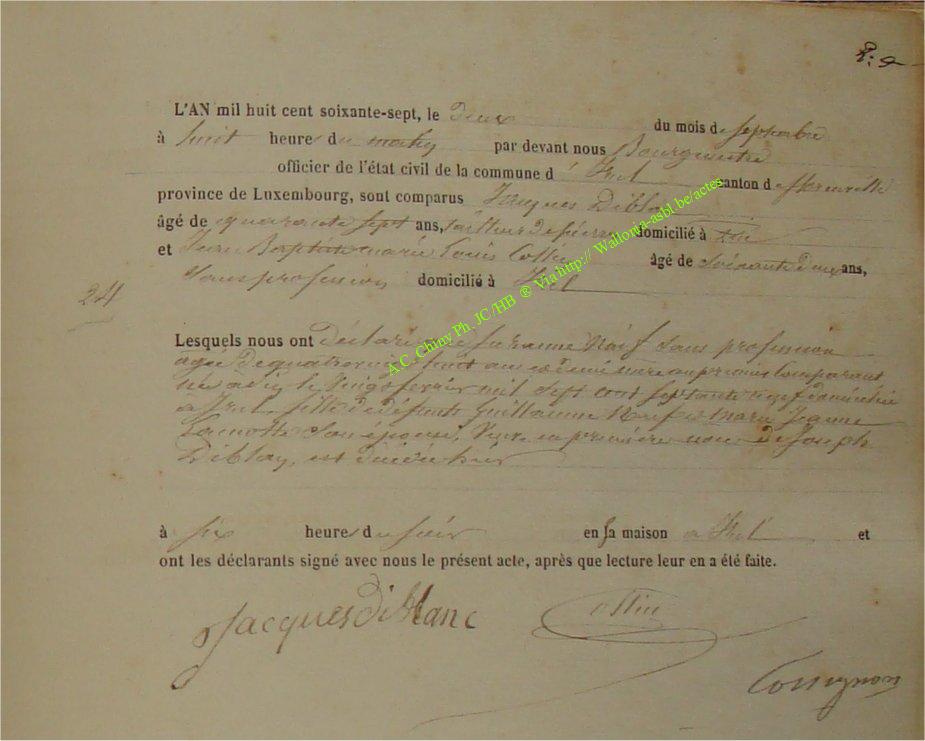 L'AN mil huit cent soixante-sept, le deux du mois de septembre
à huit heures du matin par devant nous Bourgmestre
officier de l'état civil de la commune d' Izel canton de florenville
province de Luxembourg, sont comparus Jacques Diblan
âgé de quarante sept ans, tailleur de pierre domicilié à Izel
et Jean Baptiste marie Louis âgé de soixante deux ans,
sans profession domicilié à Izel
24
Lesquels nous ont déclaré que Suzanne Naif sans profession
agée de quatre vingt huit ans et demi mere au premier Comparant
née le vingt fevrier mil sept cent septante neuf domiciliée
à Izel, fille de défunts Guillaume Naif et marie Jeanne
Lamotte Son épouse, Veuve en première noce de Joseph
Diblan, est décédée hier
à six heures du soir en sa maison à Izel et
ont les déclarants signé avec nous le présent acte, après que lecture leur en a été faite.
Jacques diblanc
Cossignon
A.C. Chiny Ph. JC/HB ® Via http:// Wallonia-asbl.be/actes